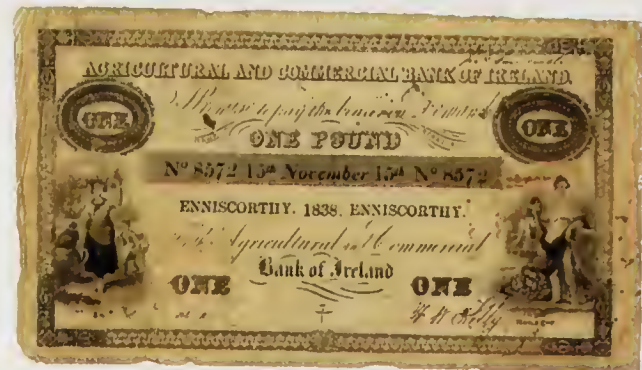 AGRICULTURAL AND COMMERCIAL BANK OF IRELAND.
ONE I Promise to pay the bearer on Demand ONE
ONE POUND
No 8572 15th November 15th No 8572
ENNISCORTHY. 1838. ENNISCORTHY.
Agricultural and Commercial
ONE Bank of Ireland ONE
Kelly